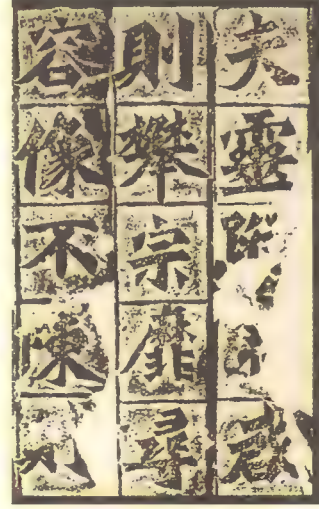 夫靈
則攀宗靡尋
容像不陳